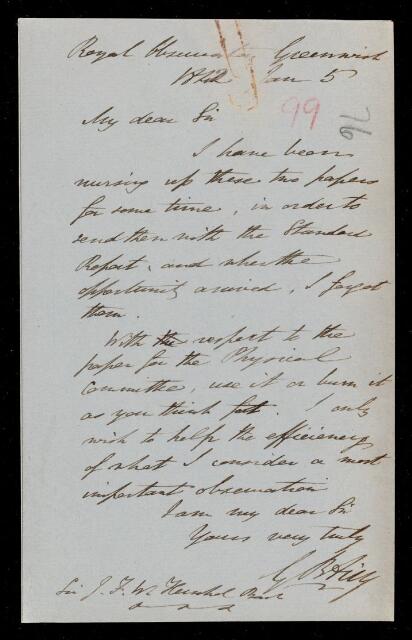 Royal Observatory Greenwich
1842 Jan 5
99
76
My dear Sir
I have been
nursing up these two papers
for some time, in order to
send them with the Standard
Report, and when the
opportunity arrived, I forgot
them.
With the respect to the
paper for the Physical
Committee, use it or burn it
as you think fit. I only
wish to help the efficiency
of what I consider a most
important observation
I am my dear Sir
Yours very truly
G B Airy
Sir J. F. W. Herschel Bart